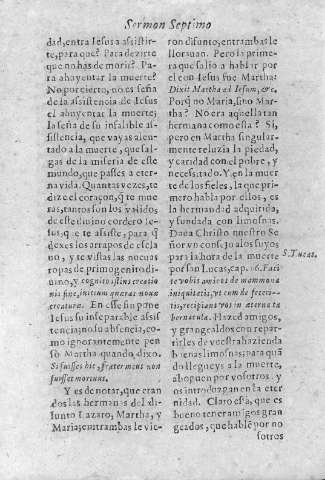 Sermon Septimo
dad, entra Iesus a assistir-
te, para que? Para dezirte
que no has de morir? Pa-
ra ahuyentar la muerte?
No por cierto, no es seña
de la assistencia de Iesus
el ahuyentar la muerte;
la seña de su infalible as-
sistencia, que vayas alen-
tado a la muerte, que sal-
gas de la miseria de este
mundo, que passes a eter-
na vida. Quantas vezes, te
dize el coraçon, q̃ te mue
ras, tantos son los validos
de este diuino cordero Ie-
sus, q̃ te assiste, para q̃
dexes los arrapos de escla
uo, y te vistas las nueuas
ropas de primogenito di-
uino, y cognito illius creatio
nis fine, initium quæras nouæ
creaturæ. En esse fin pone
Iesus su inseparable assis
tencia; no su absencia, co-
mo ignorantemente pen
sò Martha quando dixo.
Si fuisses hic, frater meus non
fuisset mortuus.
Y es de notar, que eran
dos las hermanas del di-
funto Lazaro, Martha, y
Maria; entrambas le vie-
ron difunto, entrambas le
lloraron. Pero la prime-
ra que salio a hablar por
el con Iesus fue Martha:
Dixit Martha ad Iesum, &c.
Porq̃ no Maria, sino Mar
tha? No era aquella tan
hermana como esta? Si,
pero en Martha singular-
mente reluzia la piedad,
y caridad con el pobre, y
necessitado. Y en la muer
te de los fieles, la que pri-
mero habla por ellos, es
la hermandad adquirida,
y fundada con limosnas.
Dada Christo nuestro Se
ñor vn consejo a los suyos
para la hora de la muerte
S. Lucas.
por san Lucas, cap. 16. Faci-
te vobis amicos de mammona
iniquitatis, vt cum defece-
ritis, recipiant vos in æterna ta
bernacula. Hazed amigos,
y grangealdos con repar-
tirles de vuestra hazienda
buenas limosnas; para quã
do llegueys a la muerte,
aboguen por vosotros, y
os introduzgan en la eter
nidad. Claro està, que es
bueno tener amigos gran
geados, que hablẽ por no
sotros